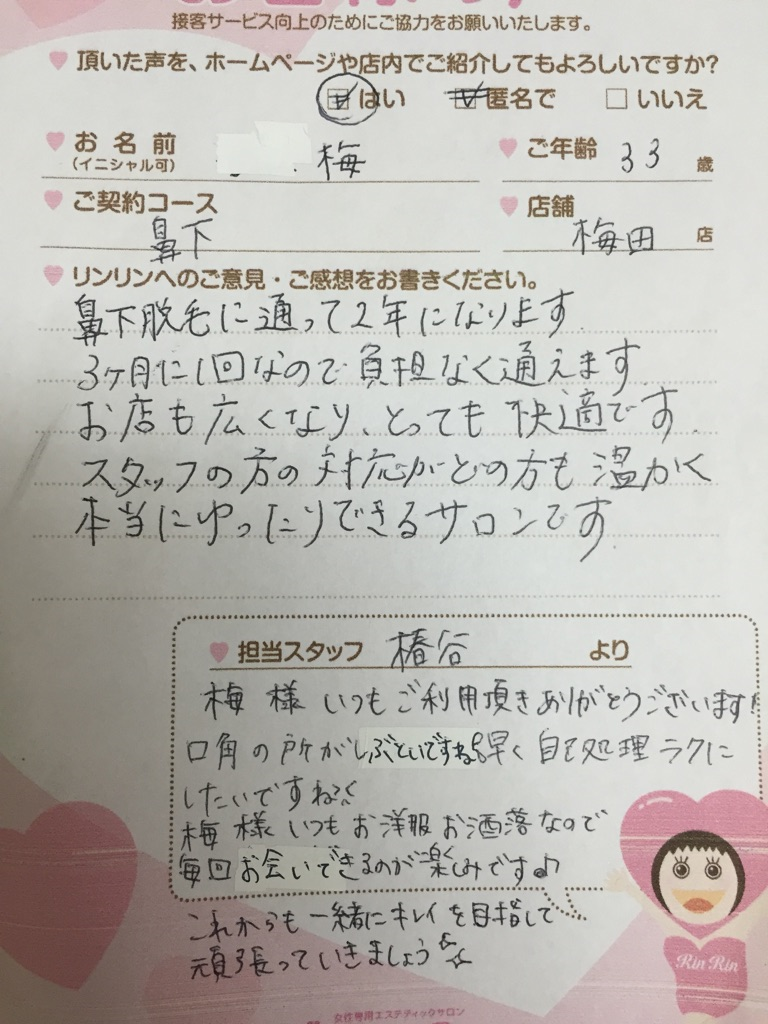 接客サービス向上のためにご協力をお願いいたします。
頂いた声を、ホームページや店内でご紹介してもよろしいですか?
はい 匿名で いいえ
お名前 梅 ご年齢 33 歳
(イニシャル可)
ご契約コース 鼻下 店舗 梅田 店
リンリンへのご意見・ご感想をお書きください。
鼻下脱毛に通って2年になります.
3ヶ月に1回なので負担なく通えます.
お店も広くなり、とっても快適です.
スタッフの方の対応がどの方も温かく
本当にゆったりできるサロンです.
担当スタッフ 椿谷 より
梅様 いつもご利用頂きありがとうございます!
口角の所がしぶといですね 早く自己処理ラクに
したいですね
梅様 いつもお洋服お洒落なので
毎回お会いできるのが楽しみです♪
これからも一緒にキレイを目指して
頑張っていきましょう
Rin Rin
女性専用エステティックサロン